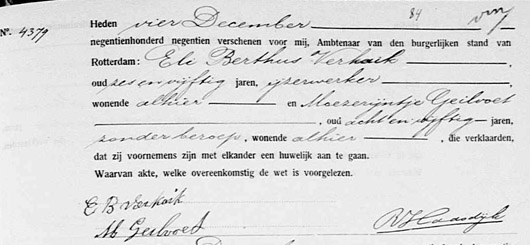 Nº. 4379
Heden vier December 84
negentienhonderd negentien verschenen voor mij, Ambtenaar van den burgerlijken stand van
Rotterdam: Eli Berthus Verkaik
oud zes en vijftig jaren, ijzerwerker
wonende alhier en Moezerijntje Geilvoet
, oud acht en vijftig jaren,
zonder beroep, wonende alhier, die verklaarden,
dat zij voornemens zijn met elkander een huwelijk aan te gaan.
Waarvan akte, welke overeenkomstig de wet is voorgelezen.
E B Verkaik
M Geilvoet